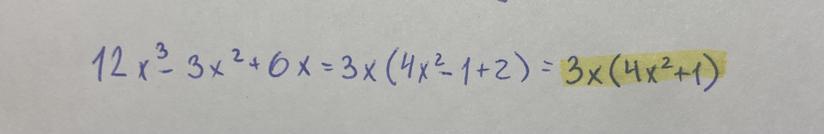 12x³- 3x²+6x=3x(4x²-1+2) = 3x(4x²+1)